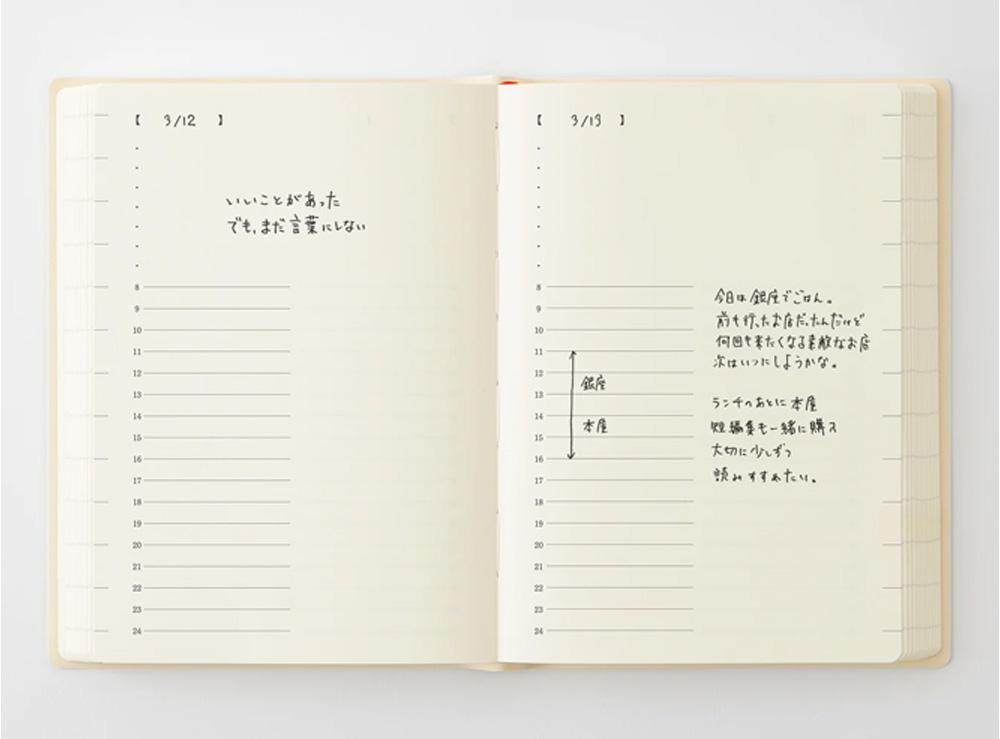 【 3/12 】
いいことがあった
でも、まだ言葉にしない
8
9
10
11
12
13
14
15
16
17
18
19
20
21
22
23
24
【 3/13 】
8
9
10
11
12
銀座
13
14
本屋
15
16
17
18
19
20
21
22
23
24
今日は銀座でごはん。
前も行ったお店だったんだけど
何回も来たくなる素敵なお店
次はいつにしようかな。
ランチのあとに本屋
短編集も一緒に購入
大切に少しずつ
読みすすめたい。